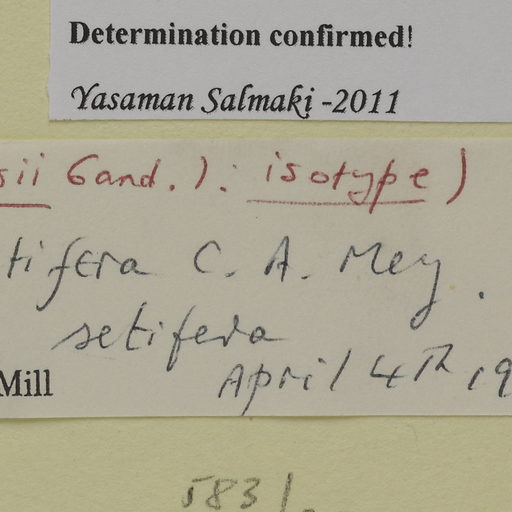 Determination confirmed!
Yasaman Salmaki -2011
sii Gand.): isotype)
tifera C. A. Mey.
setifera
Mill
April 4Th 19
5831.